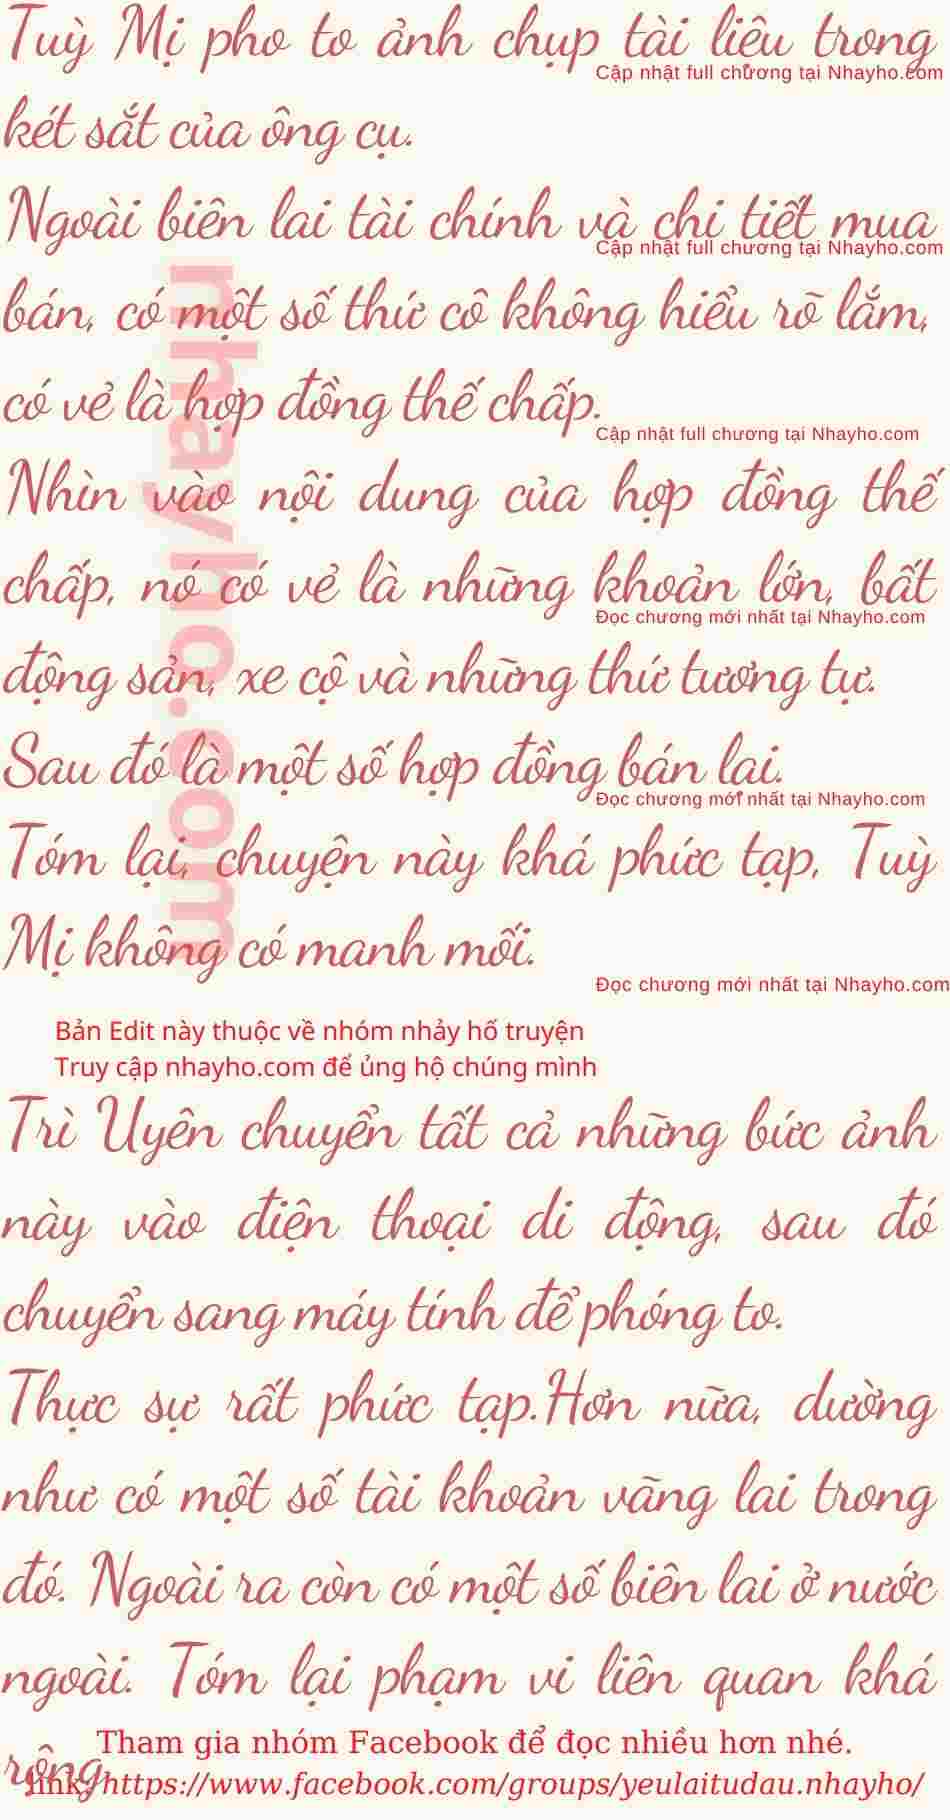 Tuỳ Mị pho to ảnh chụp tài liệu trong
Cập nhật full chương tại Nhayho.com
két sắt của ông cụ.
Ngoài biên lai tài chính và chi tiết mua
Cập nhật full chương tại Nhayho.com
bán, có một số thứ cô không hiểu rõ lắm,
có vẻ là hợp đồng thế chấp.
Cập nhật full chương tại Nhayho.com
Nhìn vào nội dung của hợp đồng thế
chấp, nó có vẻ là những khoản lớn, bất
Đọc chương mới nhất tại Nhayho.com
động sản, xe cộ và những thứ tương tự.
Sau đó là một số hợp đồng bán lại.
Đọc chương mới nhất tại Nhayho.com
Tóm lại, chuyện này khá phức tạp, Tuỳ
Mị không có manh mối.
Đọc chương mới nhất tại Nhayho.com
nhayho.com
Bản Edit này thuộc về nhóm nhảy hố truyện
Truy cập nhayho.com để ủng hộ chúng mình
Trì Uyên chuyển tất cả những bức ảnh
này vào điện thoại di động, sau đó
chuyển sang máy tính để phóng to.
Thực sự rất phức tạp.Hơn nữa, dường
như có một số tài khoản vãng lai trong
đó. Ngoài ra còn có một số biên lai ở nước
ngoài. Tóm lại phạm vi liên quan khá
rộng.
Tham gia nhóm Facebook để đọc nhiều hơn nhé.
link: https://www.facebook.com/groups/yeulaitudau.nhayho/